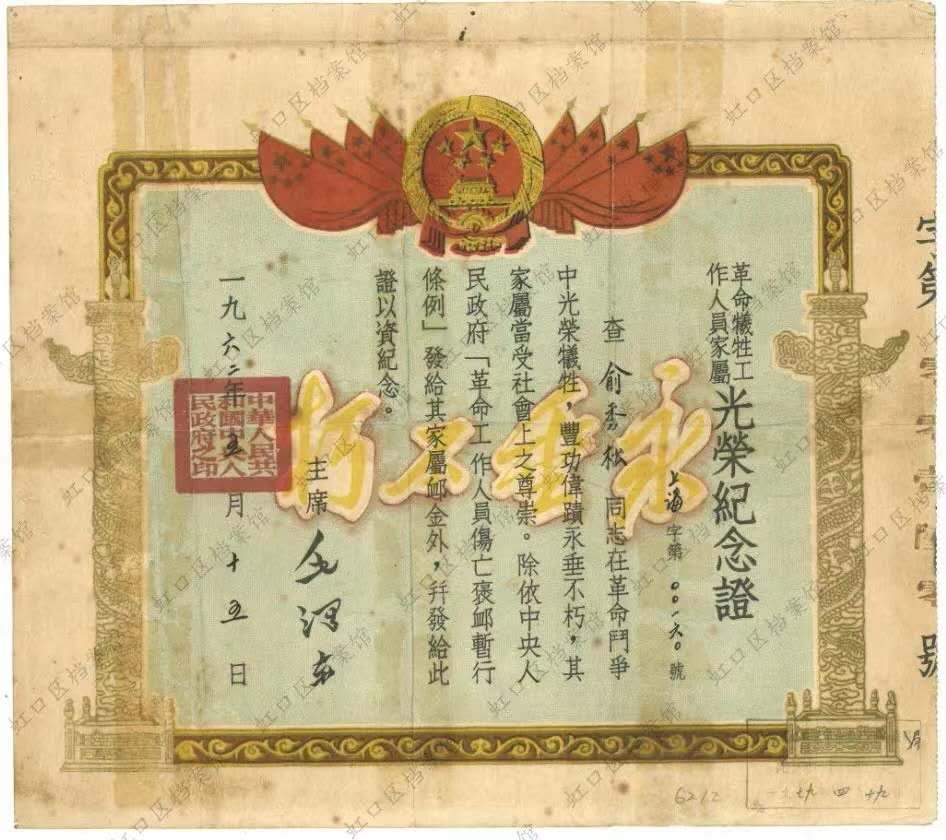 字第零零壹陸零號
革命犧牲工
作人員家屬
光榮紀念證
上海字第〇〇一六〇號
查 俞秀松 同志在革命鬥爭
中光榮犧牲，豐功偉蹟永垂不朽，其
家屬當受社會上之尊崇。除依中央人
民政府「革命工作人員傷亡褒卹暫行
條例」發給其家屬卹金外，幷發給此
證以資紀念。
永垂不朽
主席 毛澤東
一九六二年五月十五日
中華人民共
和國中央人
民政府之印
6212
虹口区档案馆